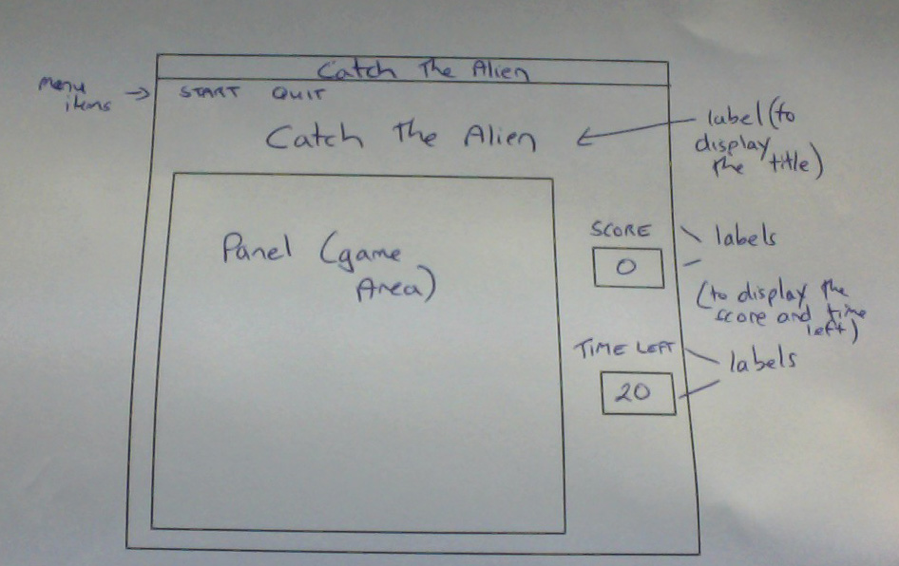 Catch The Alien
menu
items
START QUIT
Catch The Alien
label (to
display
the title)
Panel (game
Area)
SCORE
0
labels
(to display the
score and time
left)
TIME LEFT
20
labels